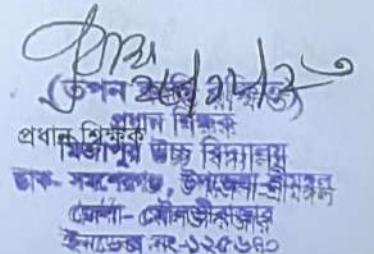 (তপন
প্রধান শিক্ষক
প্রধান শিক্ষক
মির্জাপুর উচ্চ বিদ্যালয়
ডাক- সমশেরগঞ্জ, উপজেলা-শ্রীমঙ্গল
জেলা- মৌলভীবাজার
ইনডেক্স নং-১২৫৬৪০